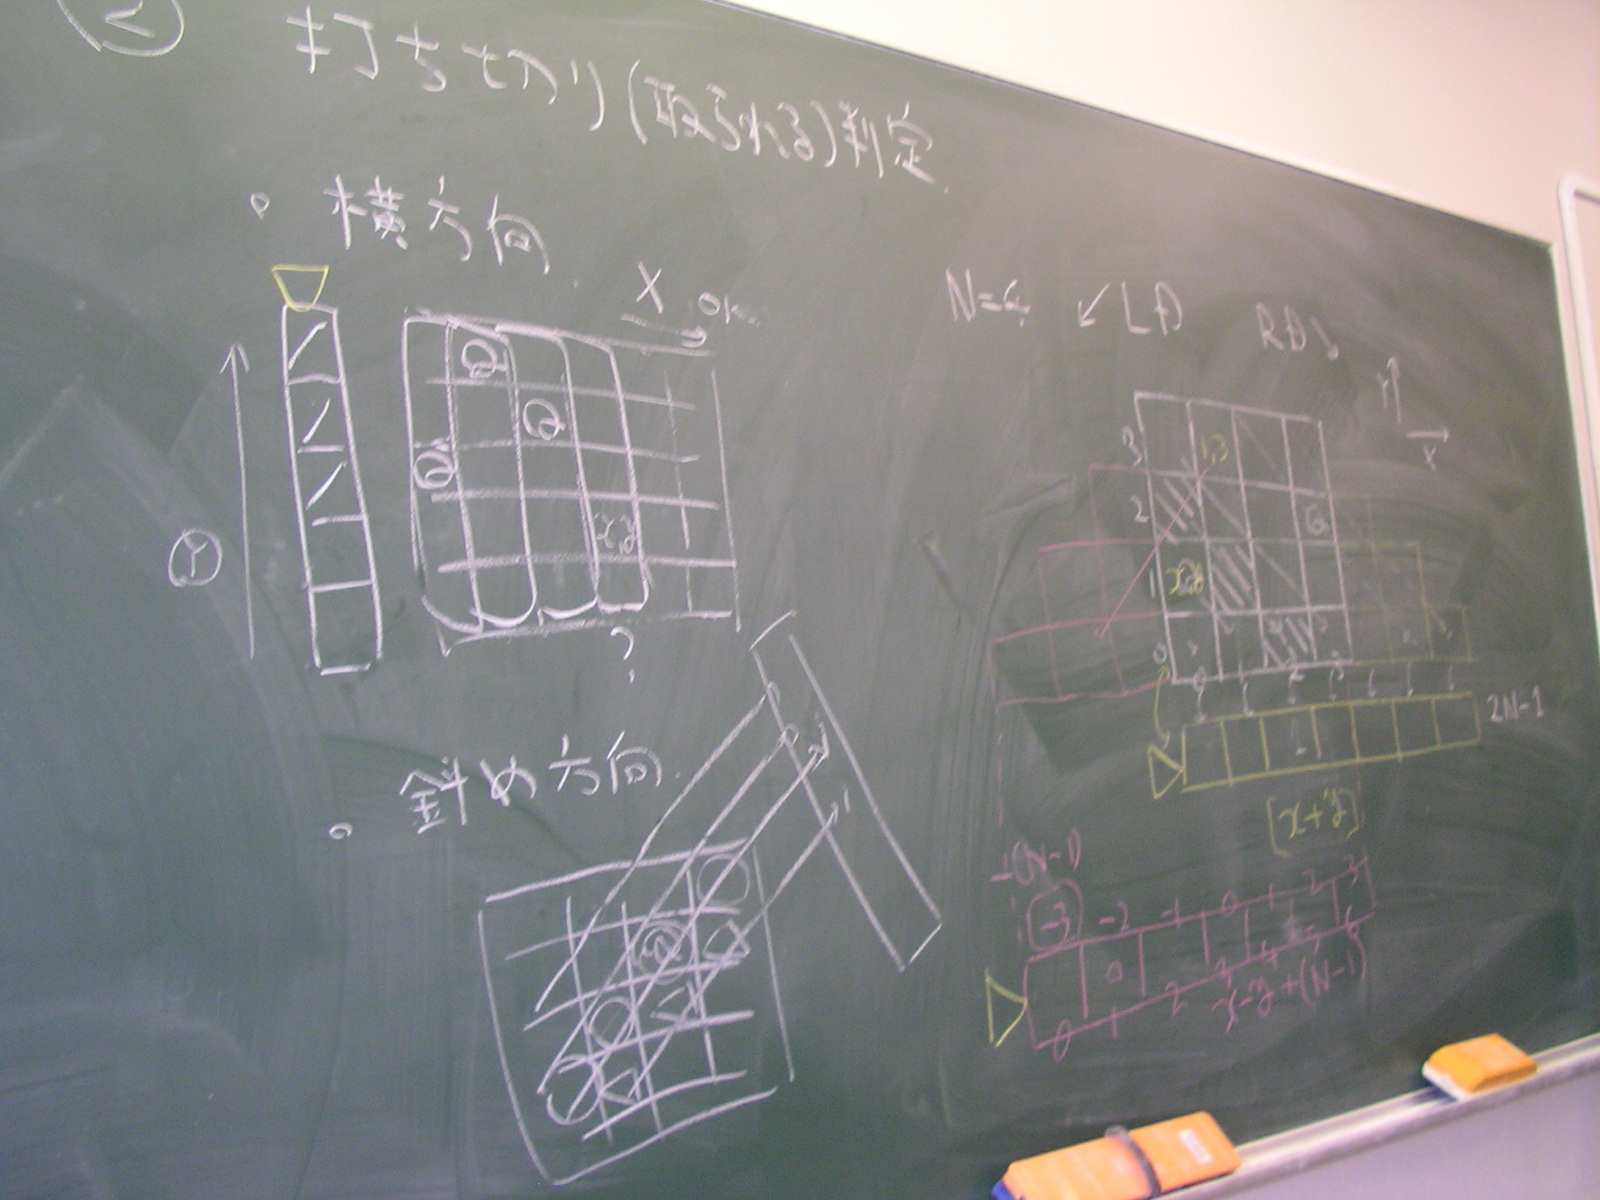 打ち切り(取られる)判定
横方向
X
Q
Q
Q
x,y
Y
?
斜め方向
N=4
↙LD
RD↘
Y
X
3
1,3
2
Q
1
0
2N-1
[x+y]
-(N-1)
-3 -2 -1 0 1 2 3
0 1 2 3 4 5 6
x-y+(N-1)